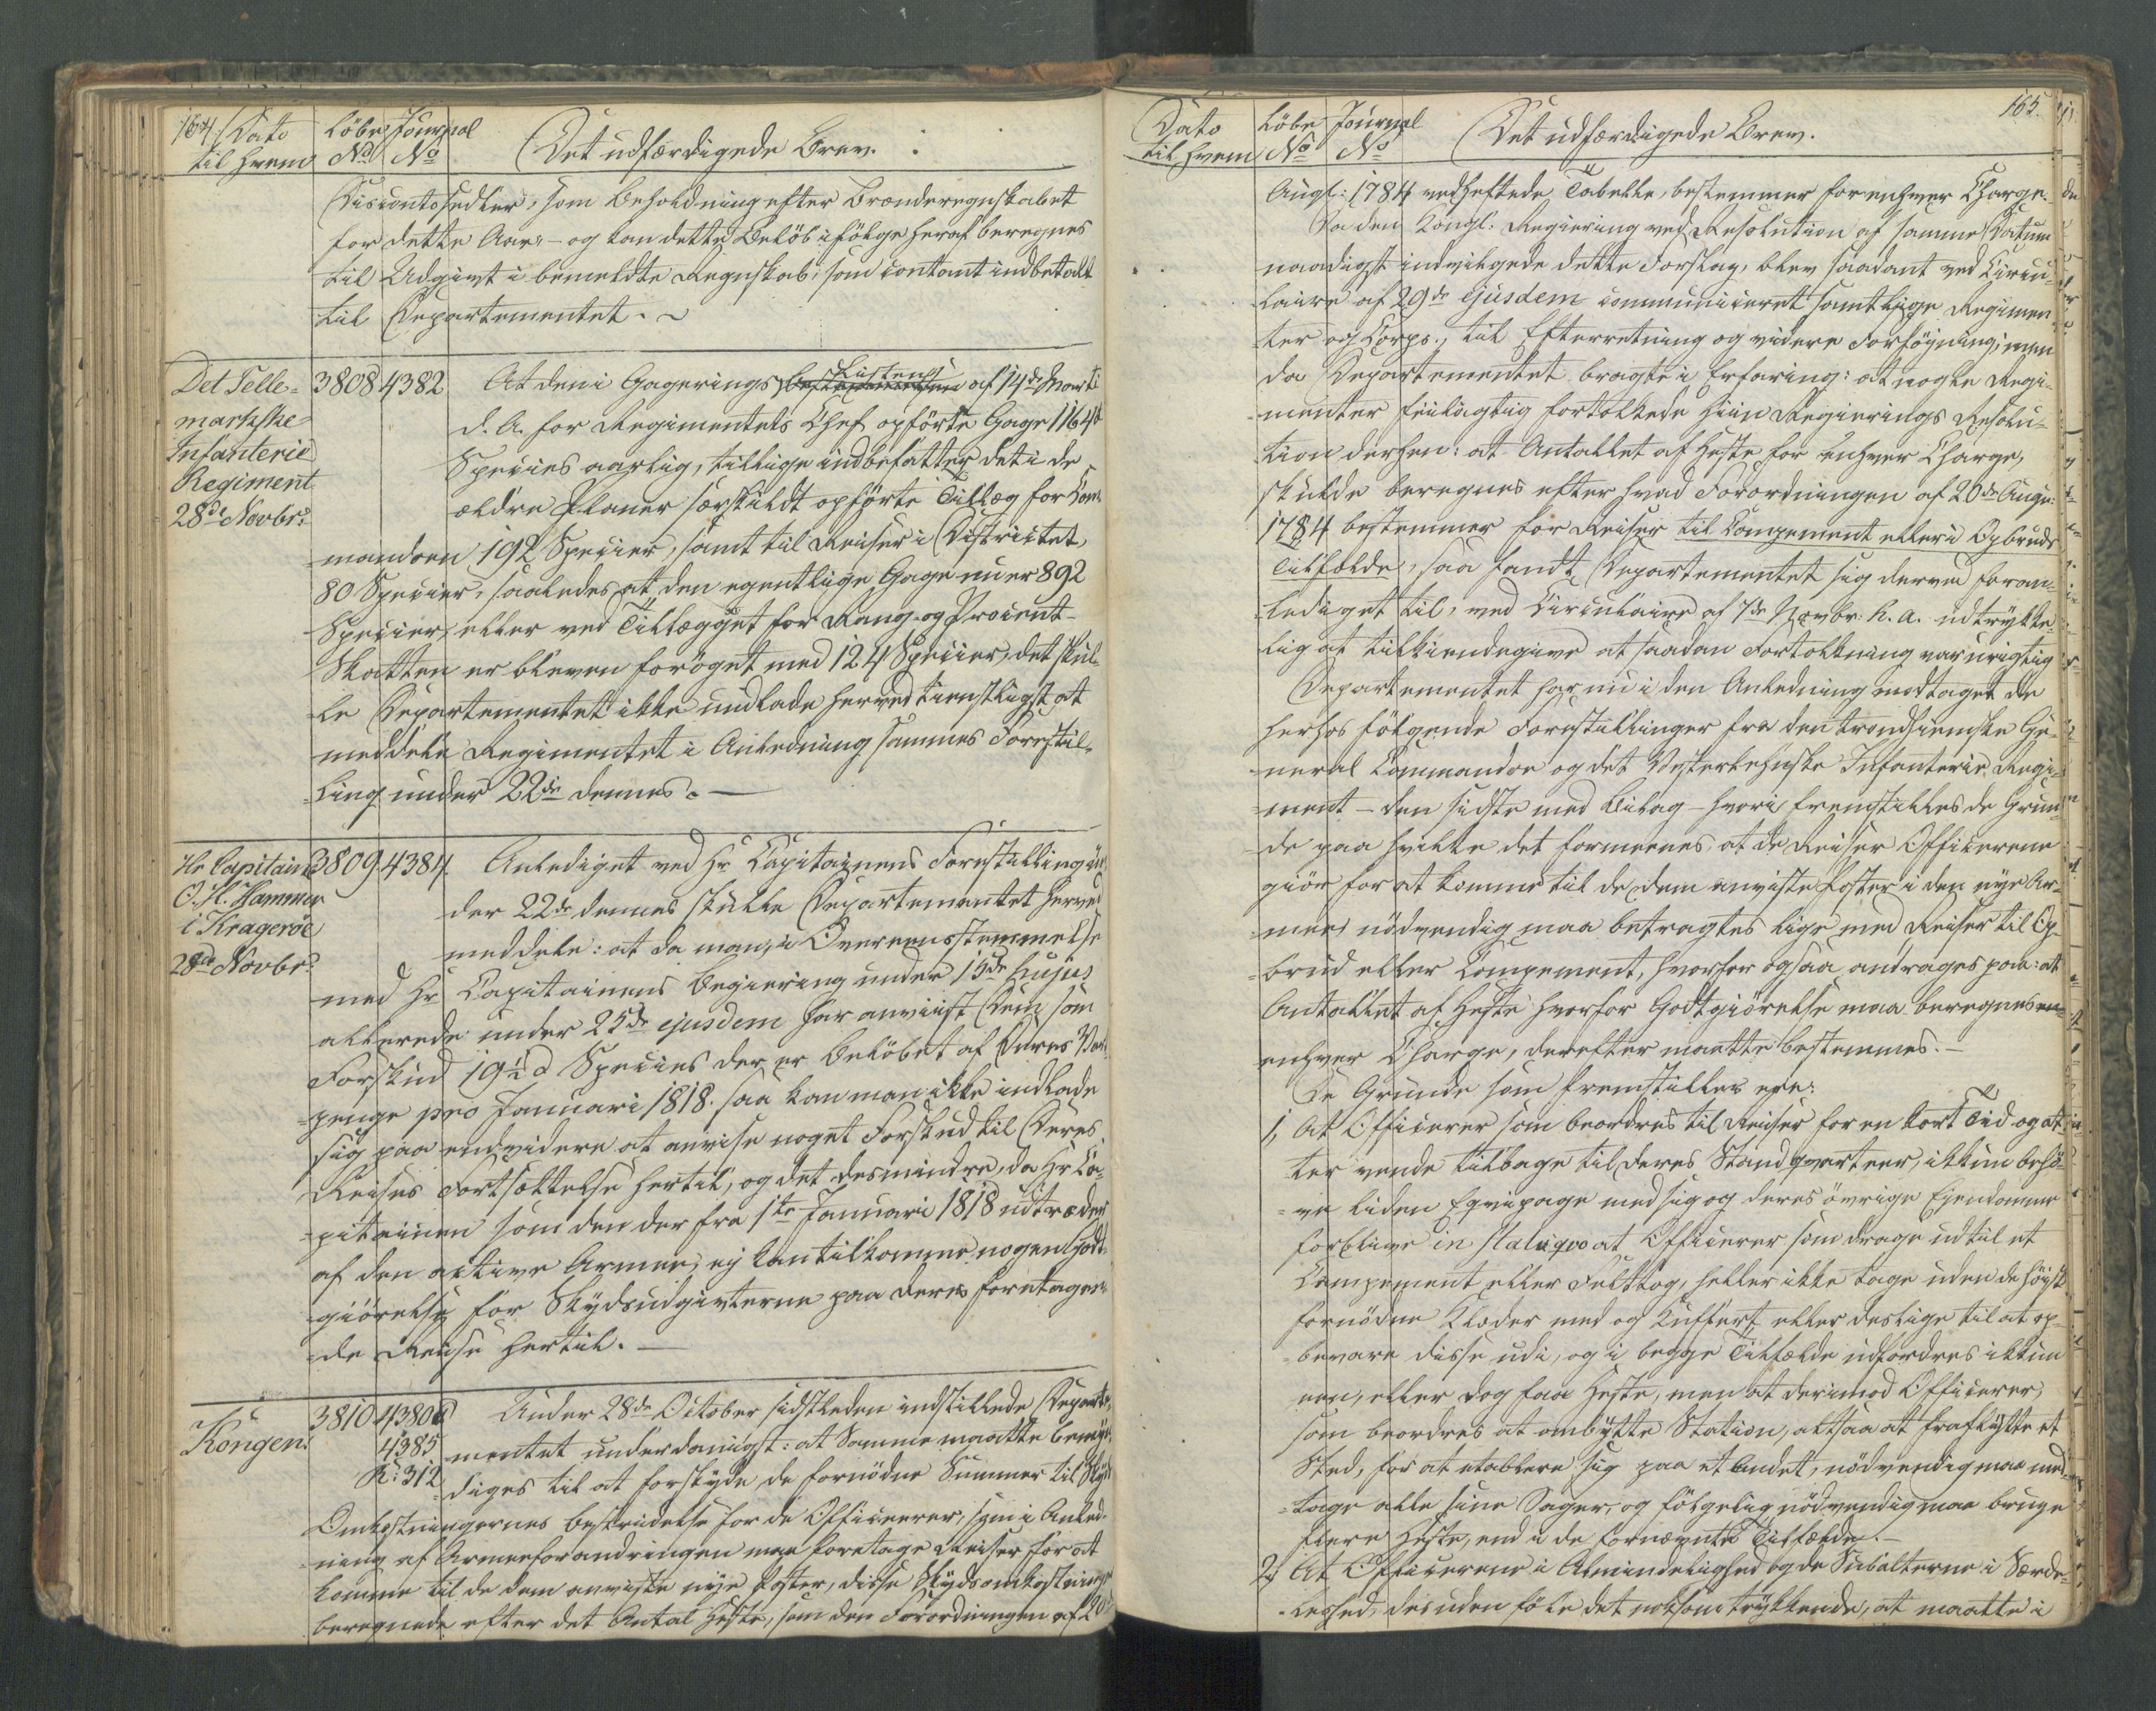 164. Dato Löbe Journal
til hvem No No Det udfærdigede Brev.
Discontosedler, som Beholdning efter Brænderegnskabet
for dette Aar, - og kan dette Belöb ifölge heraf beregnes
til Udgivt i bemeldte Regnskab, som contant indbetalt
til Departementet.
Det Telle-
markske
Infanterie
Regiment
28de Novbr:
3808 4382 At den i Gagerings Listens af 14de Marti
d. A. for Regimentets Chef opförte Gage 1164
Species aarlig, tillige indbefatter det i de
ældre Planer særskildt opförte Tillæg for Com-
mandoen 192 Specier, samt til Reiser i Districtet,
80 Specier, saaledes at den egentlige Gage nu er 892
Specier, eller ved Tillægget for Rang- og Procent-
Skatten er bleven foröget med 124 Specier, det skul-
le Departementet ikke undlade herved tienstligst at
meddele Regimentet i Anledning sammes Forestil-
ling under 22de dennes. -
Hr Capitain
O. H. Hammer
i Krageröe
28de Novbr:
3809 4384. Anlediget ved Hr Capitainens Forestilling un-
der 22de dennes skulle Departementet herved
meddele: at da man, i Overeensstemmelse
med Hr Capitainens Begiering under 15de hujus
allerede under 25de ejusdem har anviist Dem som
Forskud 19 1/2 d Species der er Belöbet af Deres Vart-
penge pro Januari 1818. saa kan man ikke indlade
sig paa endvidere at anvise noget Forskud til Deres
Reises Fortsættelse hertil, og det desmindre, da Hr Ca-
pitainen som den der fra 1te Januari 1818 udtræder
af den active Armee, ej kan tilkomme nogen Godt-
giörelse for Skydsudgivterne paa deres foretagen-
de Reise hertil. -
Kongen.
3810 4380
4385
K: 312
Under 28de October sidstleden indstillede Departe-
mentet underdanigst: at Samme maatte bemyn-
diges til at forskyde de fornödne Summer til Skyds
Omkostningernes bestridelse for de Officerer, som i Anled-
ning af Armeeforandringen maa foretage Reiser for at
komme til de dem anviste nye Poster, disse Skydsomkostninger
beregnede efter det Antal Heste, som den Forordningen af 20de
165.
Dato Löbe Journal
til hvem No No Det udfærdigede Brev.
Augl: 1784 vedheftede Tabelle, bestemmer for enhver Charge.
Da den Kongl: Regiering ved Resolution af samme Datum
naadigst indvilgede dette Forslag, blev saadant ved Circu-
laire af 29de ejusdem communiceret samtlige Regimen-
ter og Corps., til Efterretning og videre Forföyning; men
da Departementet bragte i Erfaring: at nogle Regi-
menter feilagtig fortolkede hiin Regierings Resolu-
tion derhen: at Antallet af Heste for enhver Charge,
skulde beregnes efter hvad Forordningen af 20de Augu:
1784 bestemmer for Reiser til Campement eller i Opbruds
Tilfælde, saa fandt Departementet sig derved foran-
lediget til, ved Circulaire af 7de Novbr. h. a. udtrykke-
lig at tilkiendegive at saadan Fortolkning var urigtig
Departementet har nu i den Anledning modtaget de
herhos fölgende Forestillinger fra den trondhiemske Ge-
neral Commandoe og det Vesterlehnske Infanterie Regi-
ment - den sidste med Bilag - hvori fremstilles de Grun-
de paa hvilke det formeenes at de Reiser Officerene
giör for at komme til de dem anviste Poster i den nye Ar-
mee nödvendig maa betragtes lige med Reiser til Op-
brud eller Campement, hvorfor ogsaa andrages paa: at
Antallet af Heste hvorfor Godtgiörelse maa beregnes
enhver Charge, derefter maatte bestemmes. -
De Grunde som fremstilles ere:
1, At Officerer som beordres til Reiser for en kort Tid og at-
ter vende tilbage til deres Standqvarteer, ikkun behö-
ve liden Eqvipage med sig og deres övrige Ejendomme
forblive in statu qvo at Officerer som drage ud til et
Campement eller Felttog, heller ikke tage uden de höyst
fornödne Klæder med og Kuffert eller deslige til at op-
bevare disse udi, og i begge Tilfælde udfordres ikkun
een, eller dog faa Heste, men at derimod Officerer,
som beordres at ombytte Station, altsaa at fraflytte et
Sted, for at etablere sig paa et andet, nödvendig maa med-
tage alle sine Sager, og fölgelig nödvendig maa bruge
flere Heste, end i de fornævnte Tilfælde. -
2, At Officerene i Almindelighed og de Subalterne i Særde-
leshed, desuden föle det noksom trykkende, at maatte i